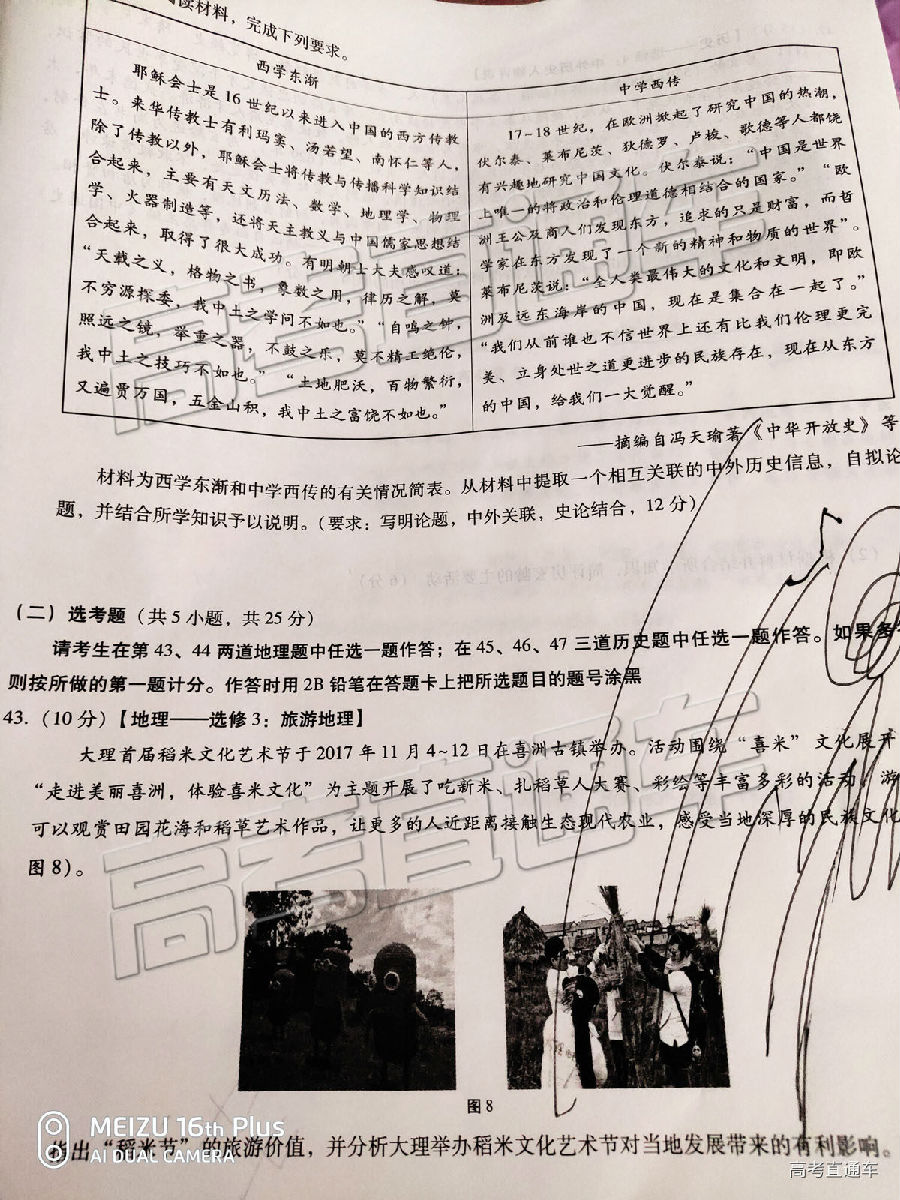 阅读材料，完成下列要求。
西学东渐
耶稣会士是 16 世纪以来进入中国的西方传教
士。来华传教士有利玛窦、汤若望、南怀仁等人，
除了传教以外，耶稣会士将传教与传播科学知识结
合起来，主要有天文历法、数学、地理学、物理
学、火器制造等，还将天主教义与中国儒家思想结
合起来，取得了很大成功。有明朝士大夫感叹道：
“天载之义，格物之书，象数之用，律历之解，莫
不穷源探委，我中土之学问不如也。”“自鸣之钟，
照远之镜，举重之器，不鼓之乐，莫不精工绝伦，
我中土之技巧不如也。”“土地肥沃，百物繁衍，
又遍贾万国，五金山积，我中土之富饶不如也。”
中学西传
17~18 世纪，在欧洲掀起了研究中国的热潮，
伏尔泰、莱布尼茨、狄德罗、卢梭、歌德等人都饶
有兴趣地研究中国文化。伏尔泰说：“中国是世界
上唯一的将政治和伦理道德相结合的国家。”“欧
洲王公及商人们发现东方，追求的只是财富，而哲
学家在东方发现了一个新的精神和物质的世界”。
莱布尼茨说：“全人类最伟大的文化和文明，即欧
洲及远东海岸的中国，现在是集合在一起了。”
“我们从前谁也不信世界上还有比我们伦理更完
美、立身处世之道更进步的民族存在，现在从东方
的中国，给我们一大觉醒。”
——摘编自冯天瑜著《中华开放史》等
材料为西学东渐和中学西传的有关情况简表。从材料中提取一个相互关联的中外历史信息，自拟论
题，并结合所学知识予以说明。（要求：写明论题，中外关联，史论结合，12 分）
（二）选考题（共 5 小题，共 25 分）
请考生在第 43、44 两道地理题中任选一题作答；在 45、46、47 三道历史题中任选一题作答。如果多
则按所做的第一题计分。作答时用 2B 铅笔在答题卡上把所选题目的题号涂黑
43.（10 分）【地理——选修 3：旅游地理】
大理首届稻米文化艺术节于 2017 年 11 月 4~12 日在喜洲古镇举办。活动围绕“喜米”文化展开
“走进美丽喜洲，体验喜米文化”为主题开展了吃新米、扎稻草人大赛、彩绘等丰富多彩的活动，游
可以观赏田园花海和稻草艺术作品，让更多的人近距离接触生态现代农业，感受当地深厚的民族文化
图 8）。
图 8
指出“稻米节”的旅游价值，并分析大理举办稻米文化艺术节对当地发展带来的有利影响。
MEIZU 16th Plus
AI DUAL CAMERA
高考直通车
高考直通车
高考直通车